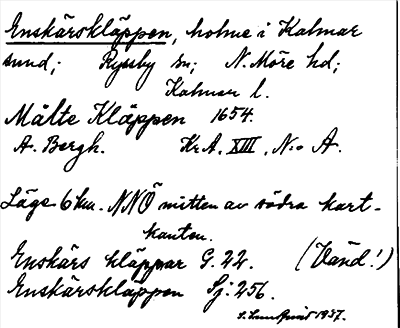 Enskärskläppen, holme i Kalmar
sund; Ryssby sn; N. Möre hd;
Kalmar l.
Målte Kläppen 1654.
A. Bergh. Kr.A. XIII. N:o A.
Läge 6 km. NNÖ mitten av södra kart-
kanten.
Enskärs kläppar G. 22. (Vänd!)
Enskärskläppen Sj. 256.
1937.